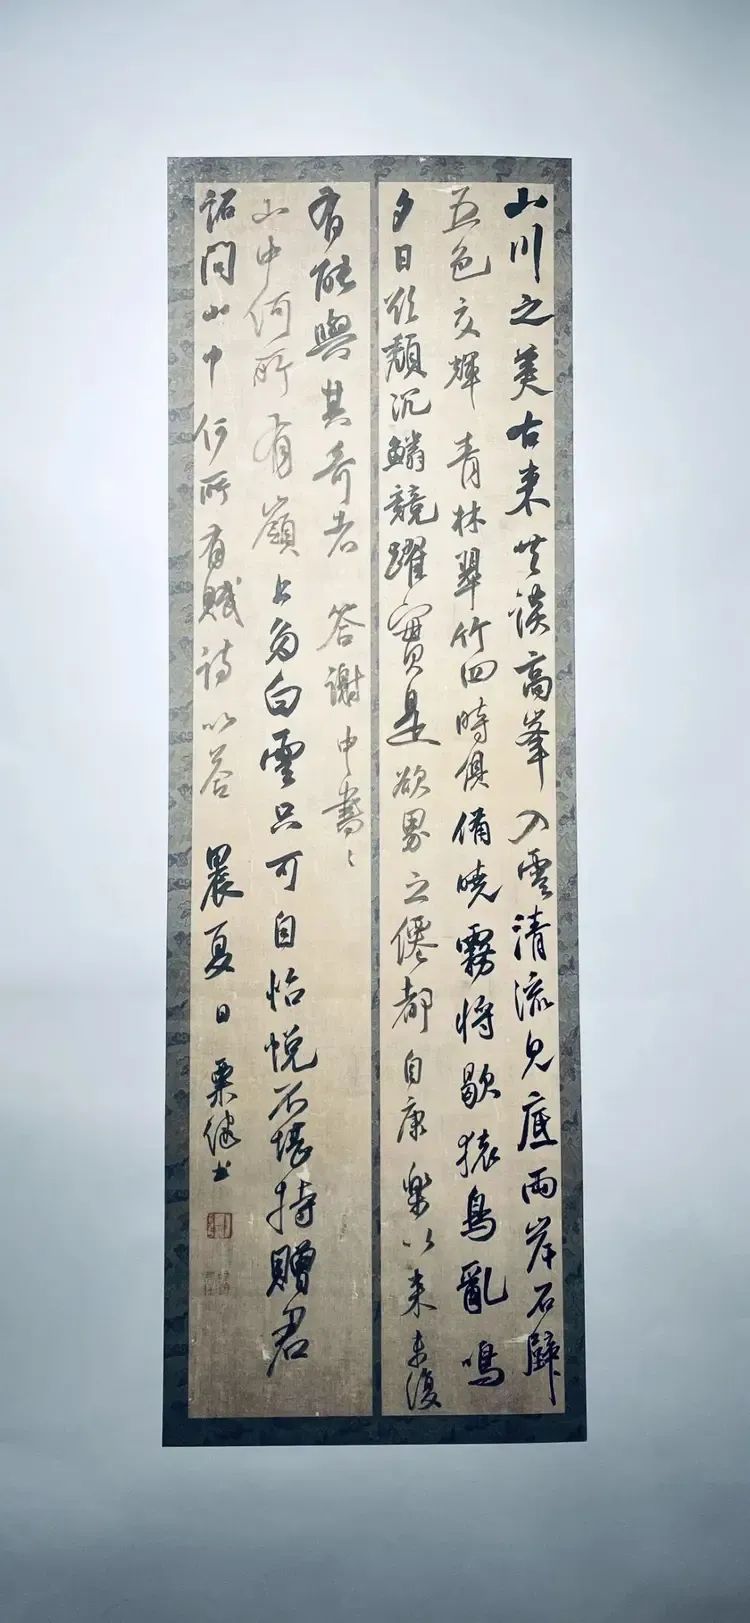 山川之美古來共談高峯入雲清流見底兩岸石壁
五色交輝青林翠竹四時俱備曉霧將歇猿鳥亂鳴
夕日欲頹沉鱗競躍實是欲界之僊都自康樂以來未復
有能與其奇者 答謝中書書
山中何所有嶺上多白雲只可自怡悅不堪持贈君
詔問山中何所有賦詩以答 晨夏日 栗僊书